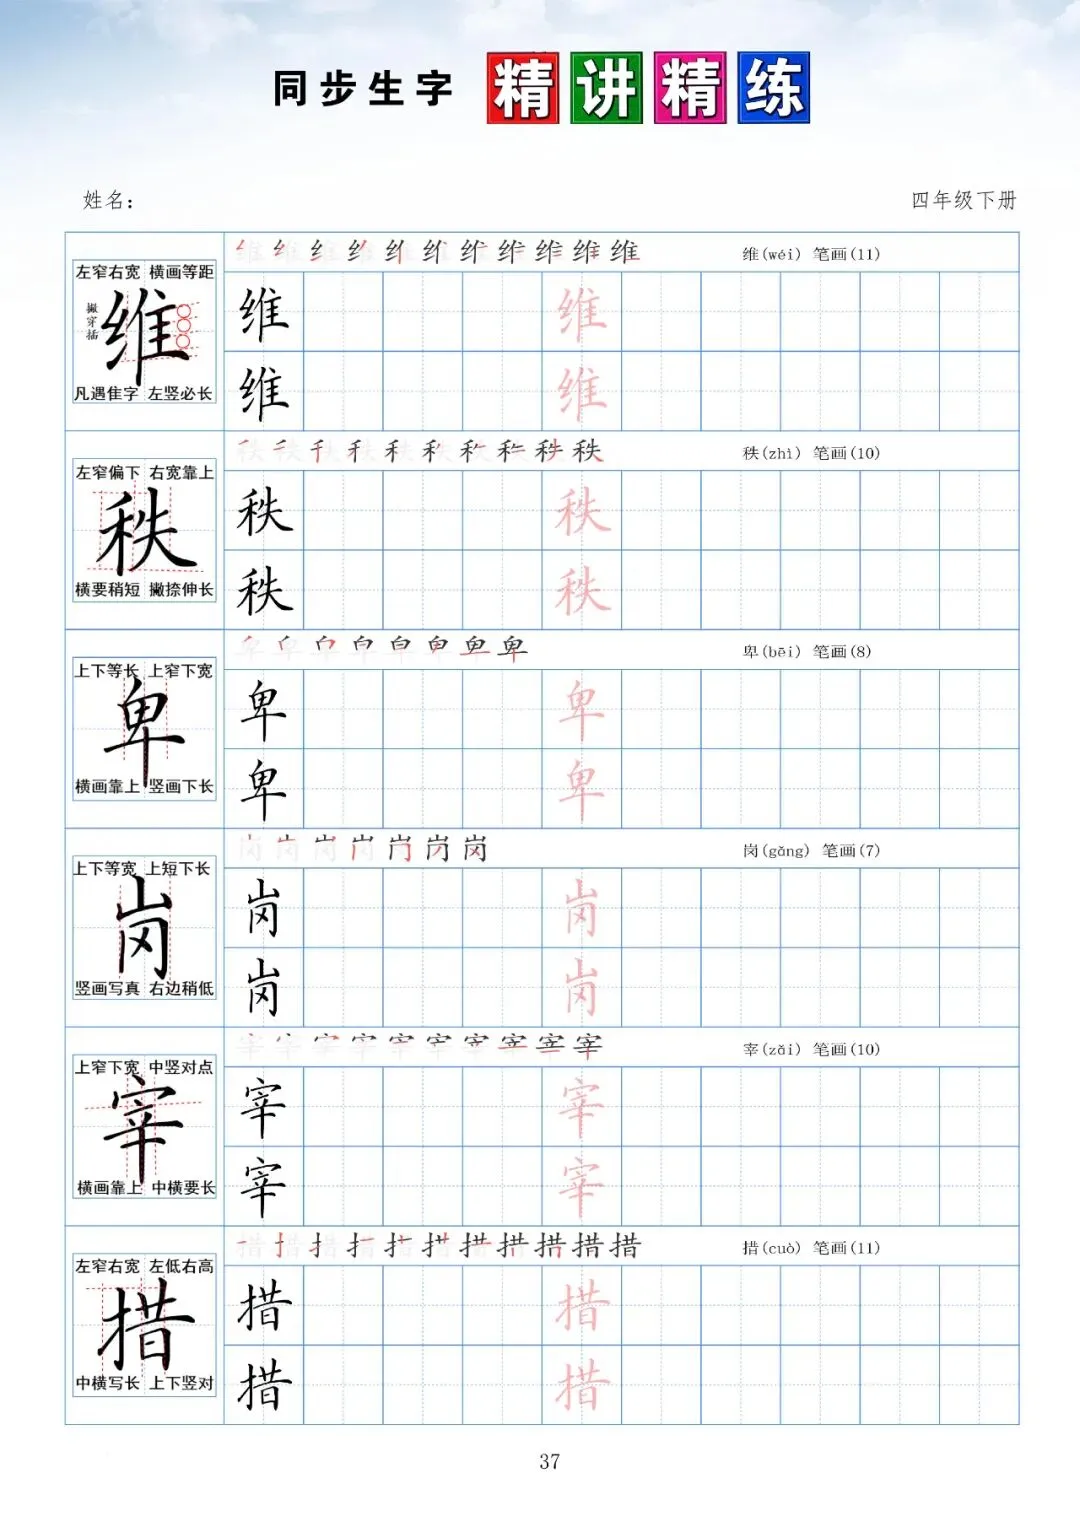 同步生字 精讲精练
姓名： 四年级下册
维(wéi) 笔画(11)
左窄右宽 横画等距
撇穿插
维
凡遇隹字 左竖必长
维 维
维 维
秩(zhì) 笔画(10)
左窄偏下 右宽靠上
秩
横要稍短 撇捺伸长
秩 秩
秩 秩
卑(bēi) 笔画(8)
上下等长 上窄下宽
卑
横画靠上 竖画下长
卑 卑
卑 卑
岗(gǎng) 笔画(7)
上下等宽 上短下长
岗
竖画写真 右边稍低
岗 岗
岗 岗
宰(zǎi) 笔画(10)
上窄下宽 中竖对点
宰
横画靠上 中横要长
宰 宰
宰 宰
措(cuò) 笔画(11)
左窄右宽 左低右高
措
中横写长 上下竖对
措 措
措 措
37